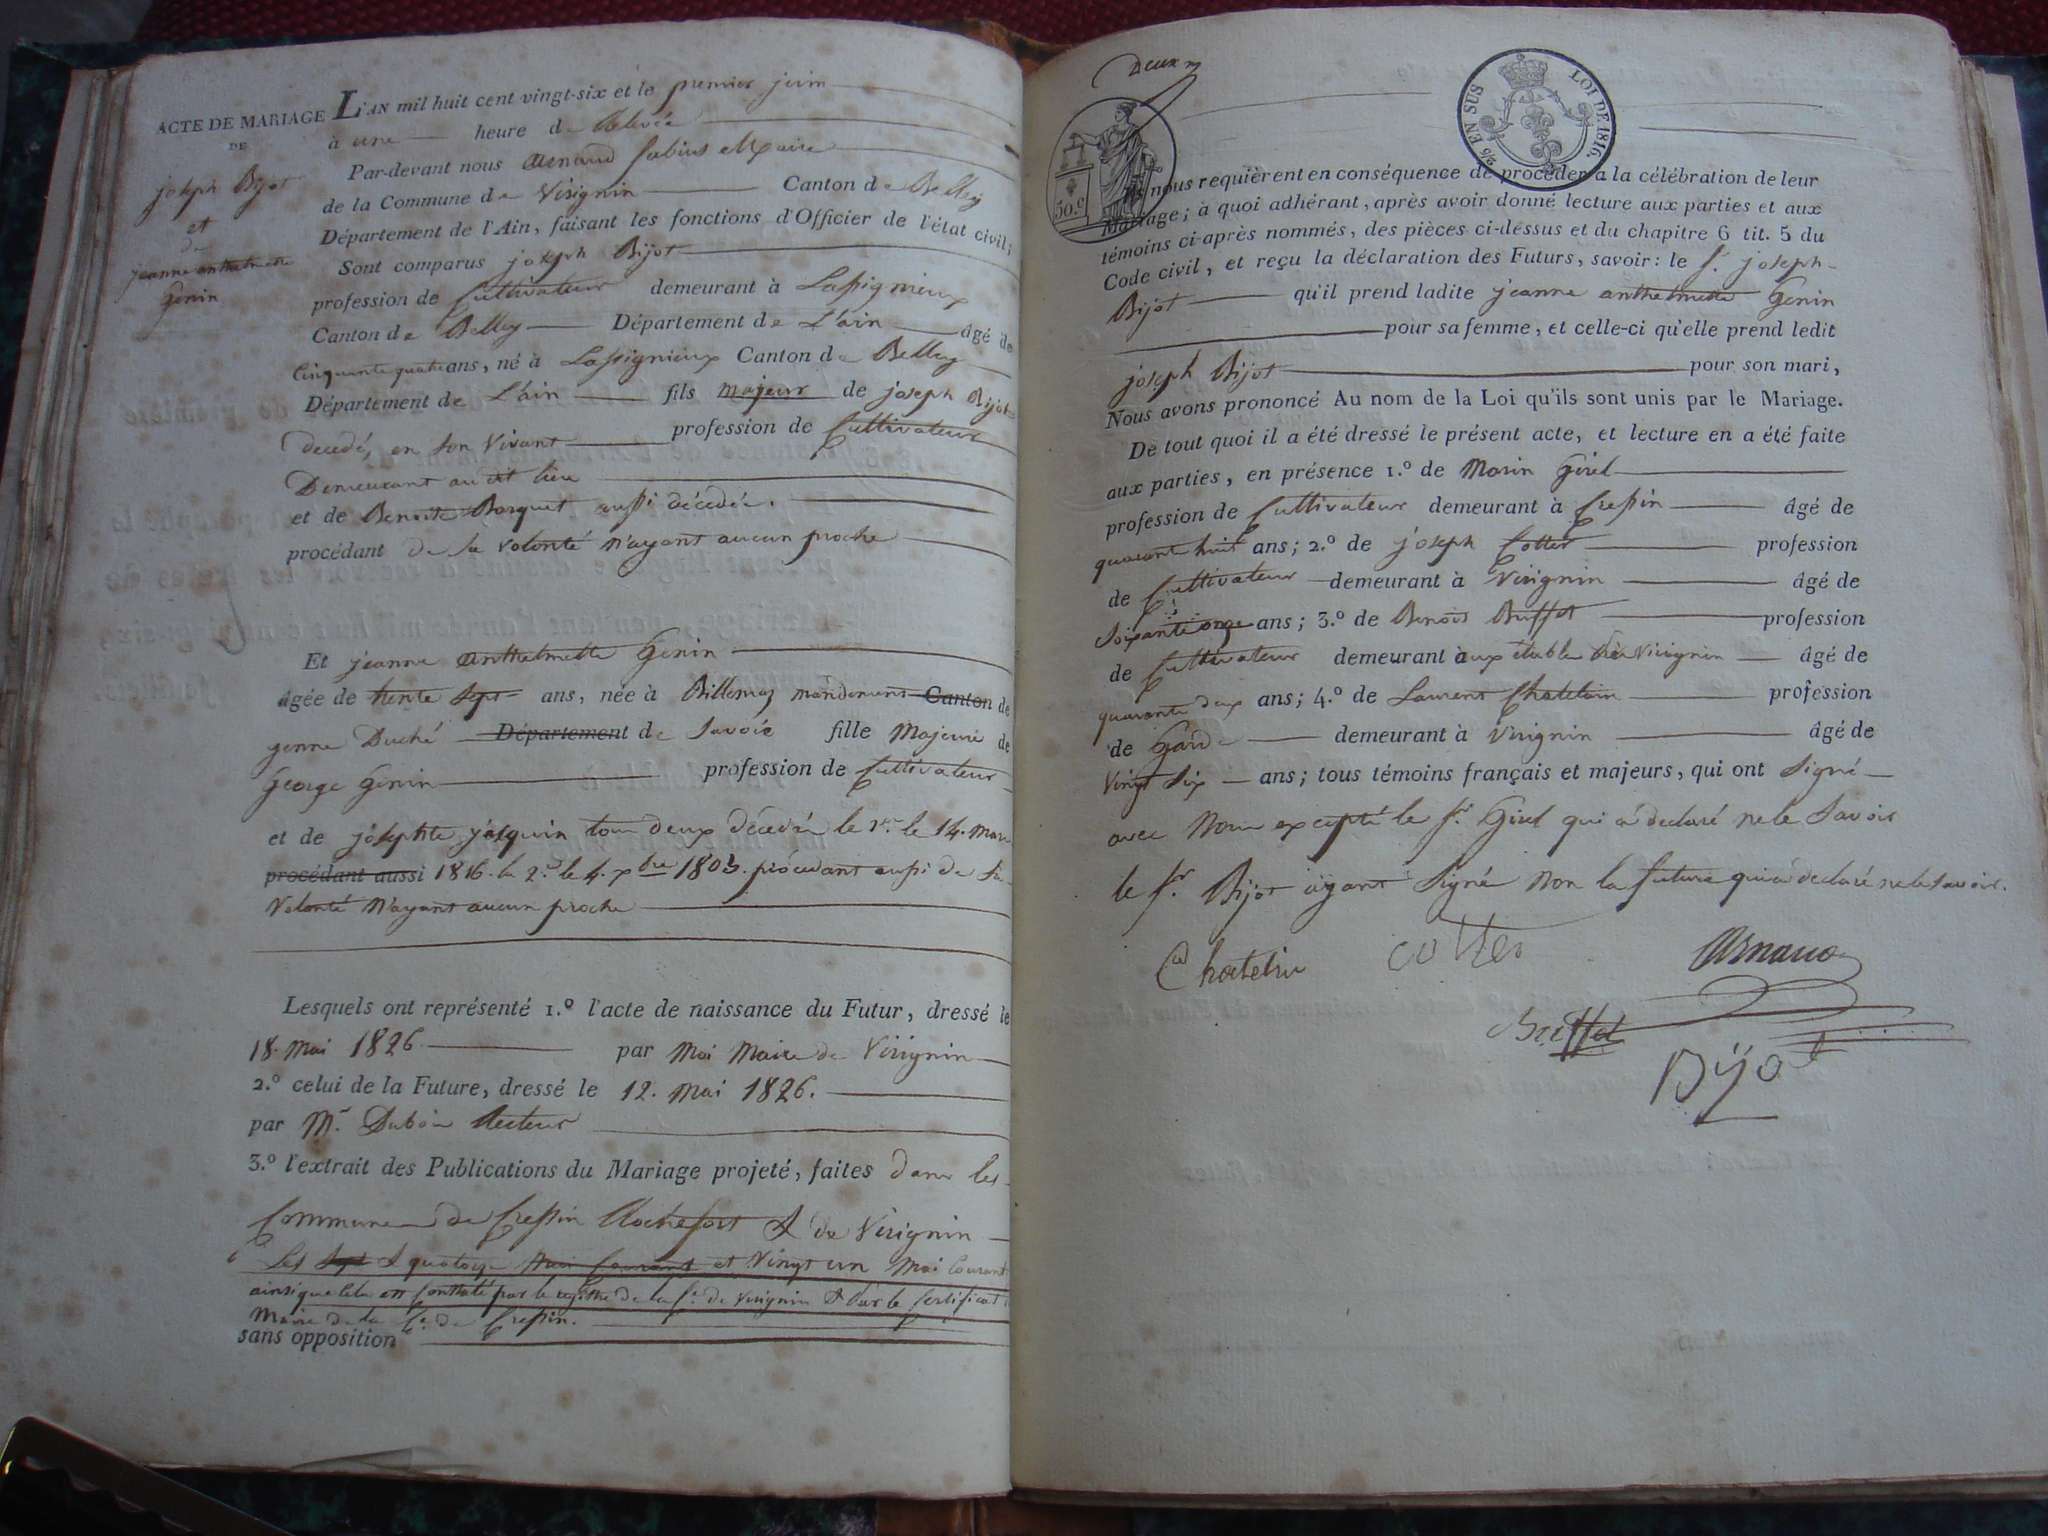 ACTE DE MARIAGE
DE
joseph Bijot
et
de
jeanne anthelmette
Genin
L'AN mil huit cent vingt-six et le premier juin
à une heure de Relevée
Par-devant nous Arnaud fabius Maire
de la Commune de Virignin Canton de Belley
Département de l'Ain, faisant les fonctions d'Officier de l'état civil;
Sont comparus joseph Bijot
profession de Cultivateur demeurant à Lassignieux
Canton de Belley Département de L'ain âgé de
Cinquante quatre ans, né à Lassignieux Canton de Belley
Département de L'ain fils majeur de joseph Bijot
decedé, en son Vivant profession de Cultivateur
Demeurant au dit lieu
et de Benoite Borquet aussi décédée.
procédant de sa Volonté N'ayant aucun proche
Et jeanne anthelmette Genin
âgée de trente sept ans, née à Billemaz mandement Canton de
yenne Duché Département de Savoie fille Majeure de
George Genin profession de Cultivateur
et de josephte josquin tous deux décédés le 1er le 14. Mars
procédant aussi 1816. le 2d le 4. xbre 1803. procedant aussi de sa
Volonté N'ayant aucun proche
Lesquels ont représenté 1.º l'acte de naissance du Futur, dressé le
18. Mai 1826 par Moi Maire de Virignin
2.º celui de la Future, dressé le 12. Mai 1826.
par Mr. Dubois Recteur
3.º l'extrait des Publications du Mariage projeté, faites dans les
Communes de Cressin Rochefort & de Virignin
Les sept & quatorze Mai Courant et Vingt un Mai Courant
ainsi que cela est Constaté par le registre de la Ce. de Virignin & par le Certificat
Maire de la Ce. de Cressin.
sans opposition
Deux
50.c
% EN SUS
LOI DE 1816.
Ils nous requièrent en conséquence de procéder à la célébration de leur
Mariage; à quoi adhérant, après avoir donné lecture aux parties et aux
témoins ci-après nommés, des pièces ci-dessus et du chapitre 6 tit. 5 du
Code civil, et reçu la déclaration des Futurs, savoir: le Sr. joseph
Bijot qu'il prend ladite jeanne anthelmette Genin
pour sa femme, et celle-ci qu'elle prend ledit
joseph Bijot pour son mari,
Nous avons prononcé Au nom de la Loi qu'ils sont unis par le Mariage.
De tout quoi il a été dressé le présent acte, et lecture en a été faite
aux parties, en présence 1.º de Marin Girel
profession de Cultivateur demeurant à Cressin âgé de
quarante huit ans; 2.º de joseph Cotter profession
de Cultivateur demeurant à Virignin âgé de
Soixante onze ans; 3.º de Benoit Buffet profession
de Cultivateur demeurant aux étables de Virignin âgé de
quarante deux ans; 4.º de Laurent Chatelain profession
de Garde demeurant à Virignin âgé de
Vingt Six ans; tous témoins français et majeurs, qui ont Signé
avec Nous excepté le Sr. Girel qui a declaré ne le Savoir
le Sr. Bijot ayant Signé Non la future qui a declaré ne le savoir.
Chatelin cotter Arnaud
Buffet
Bijot